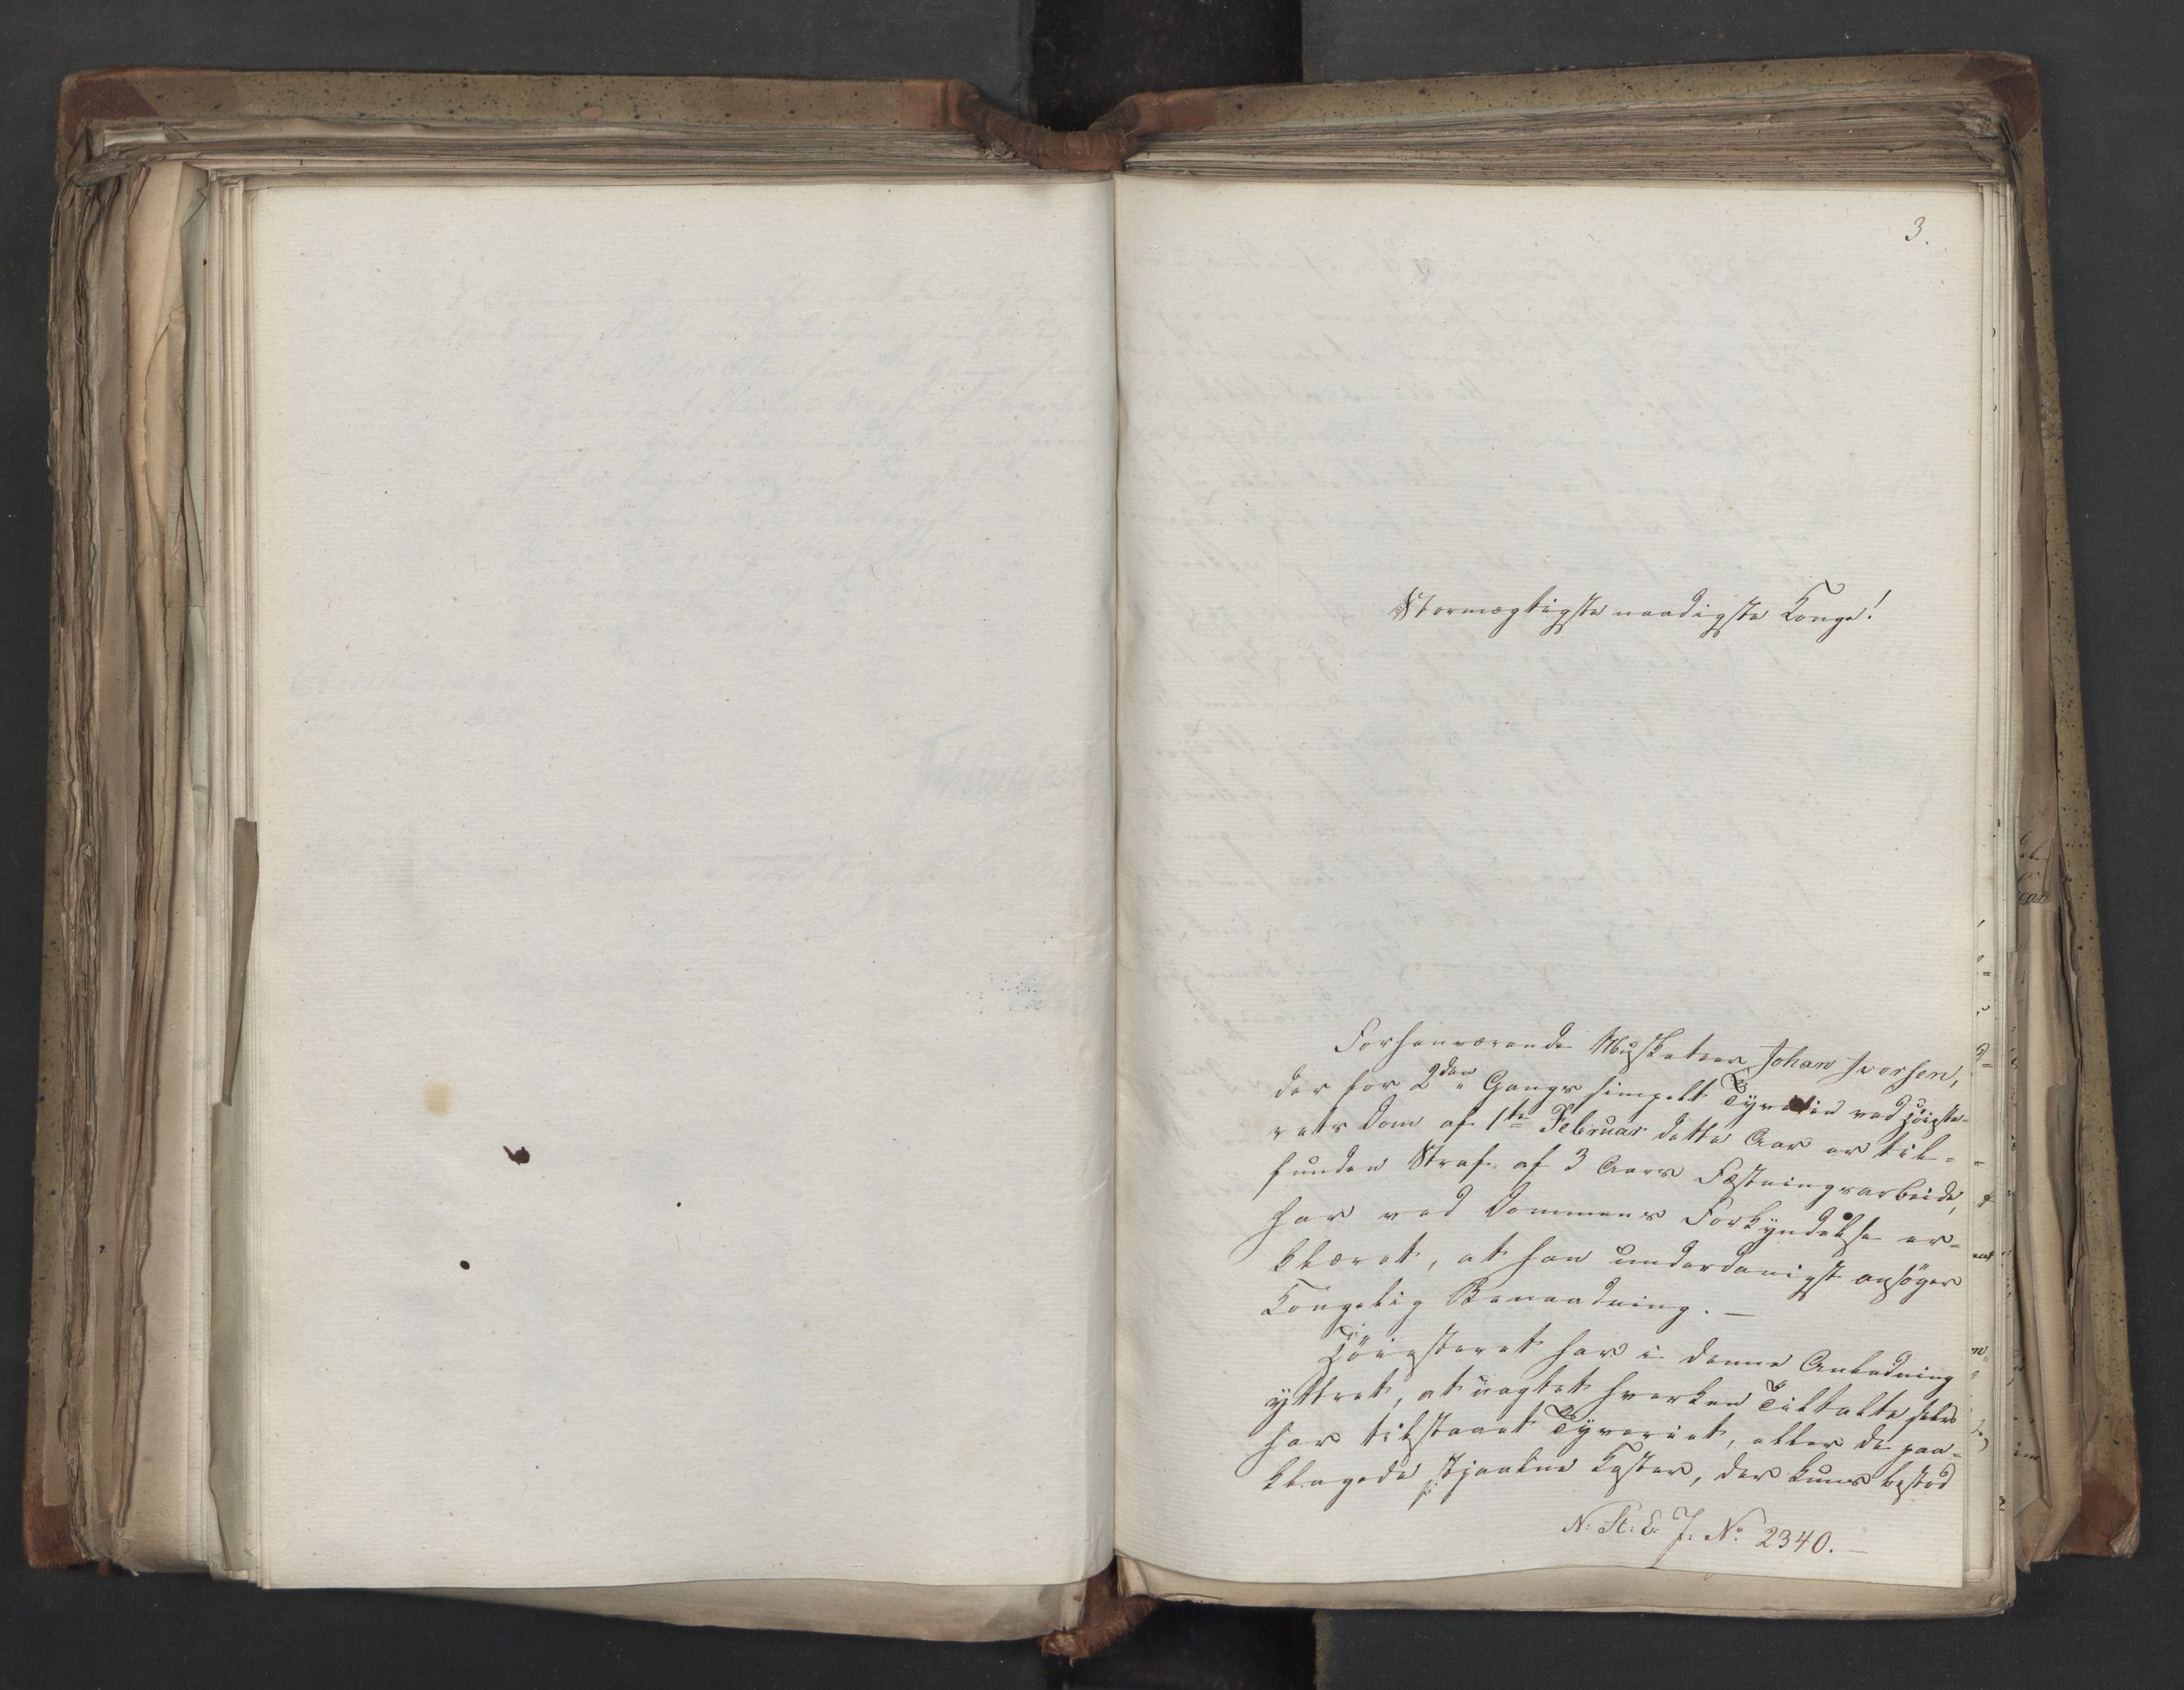 3.
Stormægtigste naadigste Konge!
Forhenværende Musketeer Johan Iversen,
der for 2den Gangs simpelt Tyverie ved Höieste-
rets Dom af 1te Februar dette Aar er til-
funden Straf af 3 Aars Fæstningsarbeide,
har ved Dommens Forkyndelse er-
klæret, at han underdanigst ansöger
Kongelig Benaadning. —
Höiesteret har i denne Anledning
yttret, at uagtet hverken Tiltalte selv
har tilstaaet Tyveriet, eller de paa-
klagede stjaalne Koster, der kuns bestod
N: St: E: J: No 2340. —